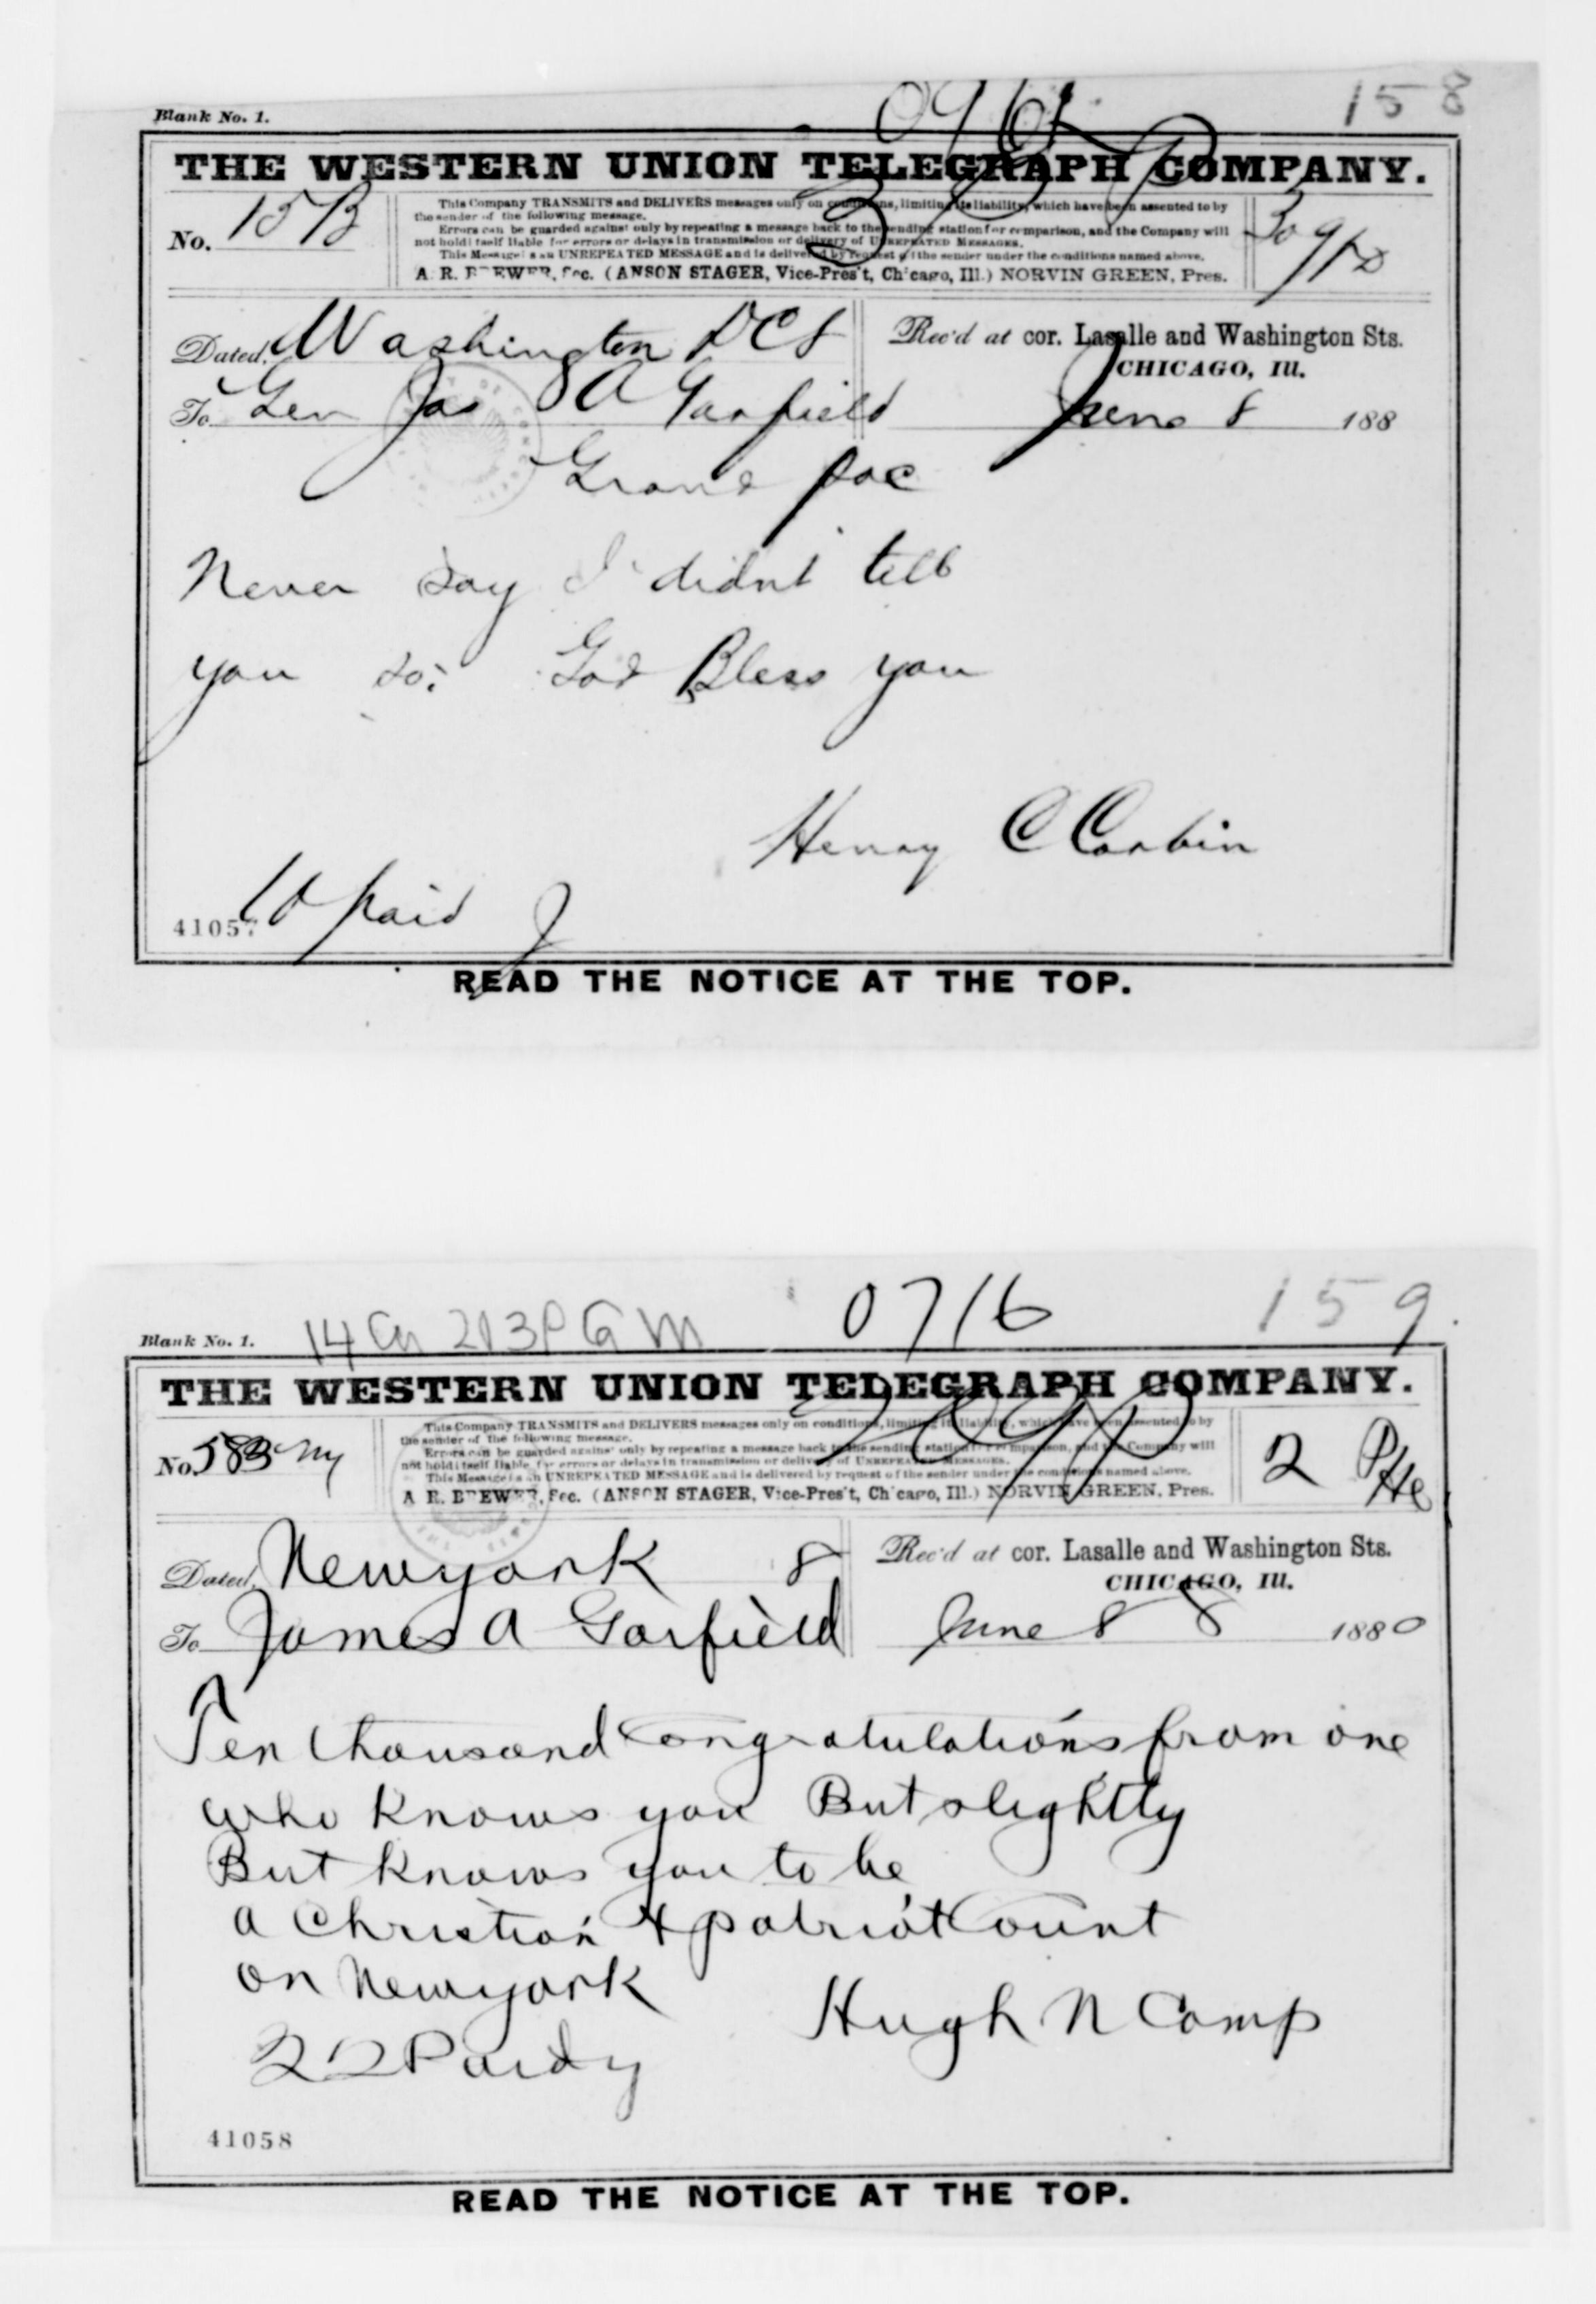 158
Blank No. 1.
THE WESTERN UNION TELEGRAPH COMPANY.
No. 15 B
This Company TRANSMITS and DELIVERS messages only on conditions, limiting its liability, which have been assented to by
the sender of the following message.
Errors can be guarded against only by repeating a message back to the sending station for comparison, and the Company will
not hold itself liable for errors or delays in transmission or delivery of UNREPEATED MESSAGES.
This Message is an UNREPEATED MESSAGE and is delivered by request of the sender under the conditions named above.
A. R. BREWER, Sec. (ANSON STAGER, Vice-Pres't, Chicago, Ill.) NORVIN GREEN, Pres.
Dated, Washington DC 8
Rec'd at cor. Lasalle and Washington Sts.
CHICAGO, Ill.
To Gen Jas A Garfield
June 8 188
Grand Pac
Never say I didnt tell
you so: God Bless you
Henry C Corbin
10 paid J
41057
READ THE NOTICE AT THE TOP.
0716
159.
Blank No. 1.
THE WESTERN UNION TELEGRAPH COMPANY.
No. 583 ny
This Company TRANSMITS and DELIVERS messages only on conditions, limiting its liability, which have been assented to by
the sender of the following message.
Errors can be guarded against only by repeating a message back to the sending station for comparison, and the Company will
not hold itself liable for errors or delays in transmission or delivery of UNREPEATED MESSAGES.
This Message is an UNREPEATED MESSAGE and is delivered by request of the sender under the conditions named above.
A. R. BREWER, Sec. (ANSON STAGER, Vice-Pres't, Chicago, Ill.) NORVIN GREEN, Pres.
Dated, Newyork 8
Rec'd at cor. Lasalle and Washington Sts.
CHICAGO, Ill.
To James A Garfield
June 8 8 1880
Ten thousand Congratulations from one
who knows you But slightly
But knows you to be
a Christian & patriot Count
on Newyork
Hugh N Camp
22 Paid y
41058
READ THE NOTICE AT THE TOP.